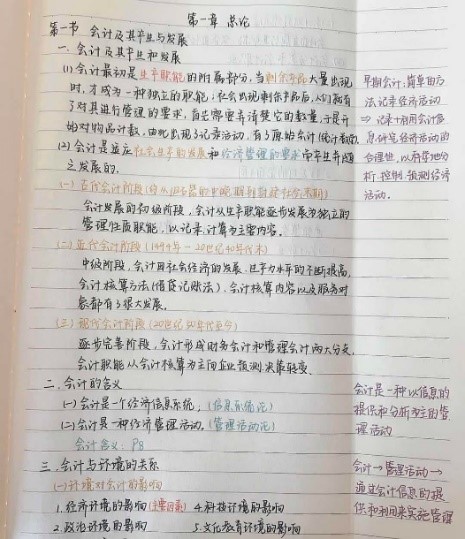 第一章 总论
第一节 会计及其产生与发展
一、会计及其产生和发展
(1)会计最初是生产职能的附属部分,当剩余产品大量出现
时,才成为一种独立的职能;社会出现剩余产品后,人们就有
了对其进行管理的要求,首先需要弄清楚它的数量,于是开
始对物品计数,由此出现了记录活动,有了原始会计(统计着面)
(2)会计是适应社会生产的发展和经济管理的要求而产生并随
之发展的.
(一)古代会计阶段(旧石器的中晚期到封建社会末期)
会计发展的初级阶段,会计从生产职能逐步发展为独立的
管理性质职能,以记录、计算为主要内容.
(二)近代会计阶段(1494年-20世纪40年代末)
中级阶段,会计因社会经济的发展,生产力水平的不断提高,
会计核算方法(借贷记账法),会计核算内容以及服务对
象都有了很大发展.
(三)现代会计阶段(20世纪50年代至今)
逐步完善阶段,会计形成财务会计和管理会计两大分支.
会计职能从会计核算为主向企业预测、决策转变.
二、会计的含义
(一)会计是一个经济信息系统;(信息系统论)
(二)会计是一种经济管理活动.(管理活动论)
会计含义:P8
三、会计与环境的关系
(一)环境对会计的影响
1.经济环境的影响(主要因素) 4.科技环境的影响
2.政治环境的影响 5.文化教育环境的影响
早期会计:简单的方
法记录经济活动
⇒记录+利用会计信
息研究经济活动的
合理性,以有学地分
析、控制、预测经济
活动.
会计是一种以信息的
提供和分析为主的管
理活动
会计→管理活动→
通过会计信息的提
供和利用来实施管理